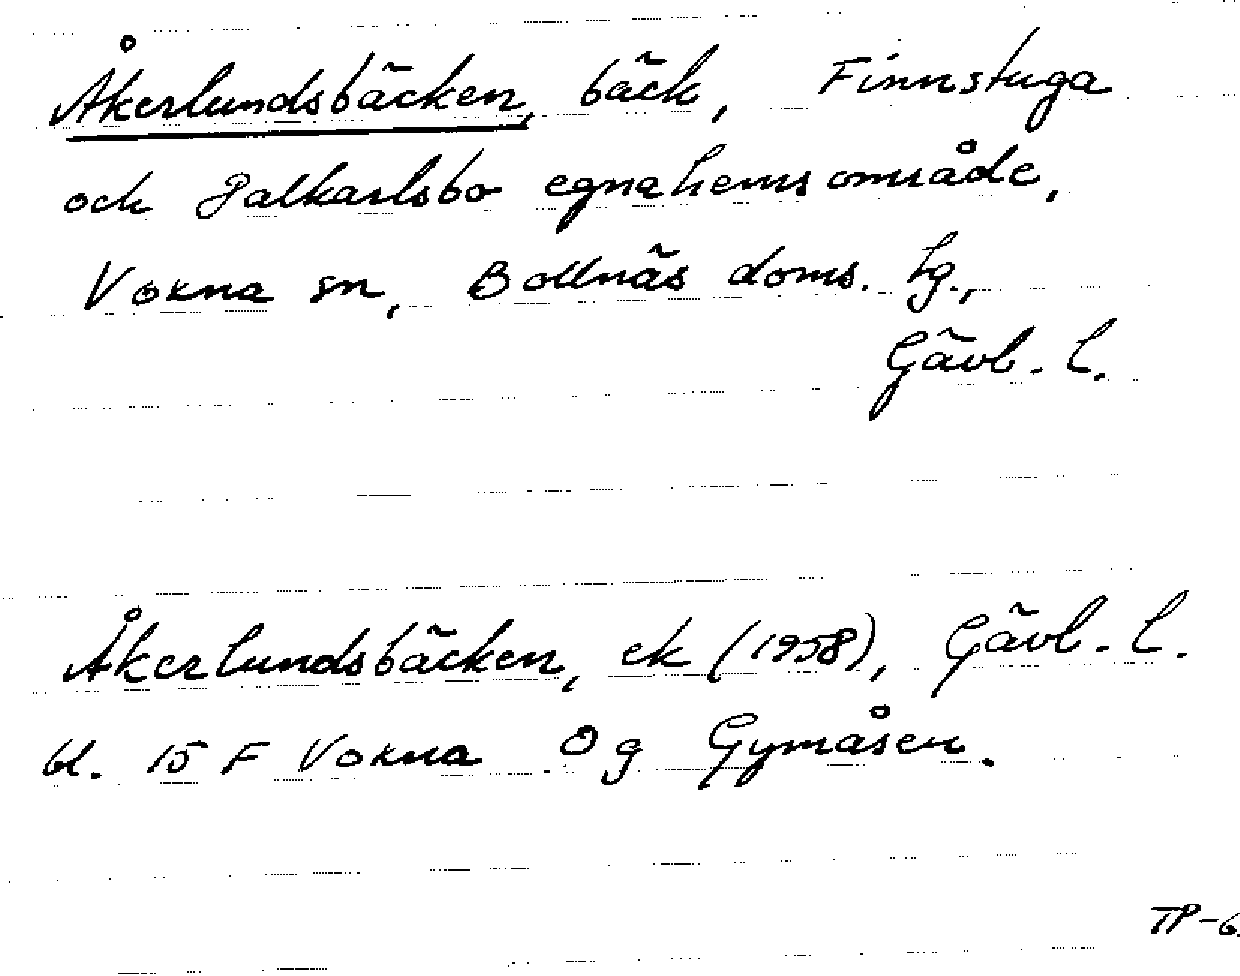 Åkerlundsbäcken, bäck, Finnstuga
och Jalkarlsbo egnahemsområde,
Voxna sn, Bollnäs doms. tg.,
Gävb. l.
Åkerlundsbäcken, ek (1958), Gävb. l.
bl. 15 F Voxna 0 g Gymåsen.
TP-6